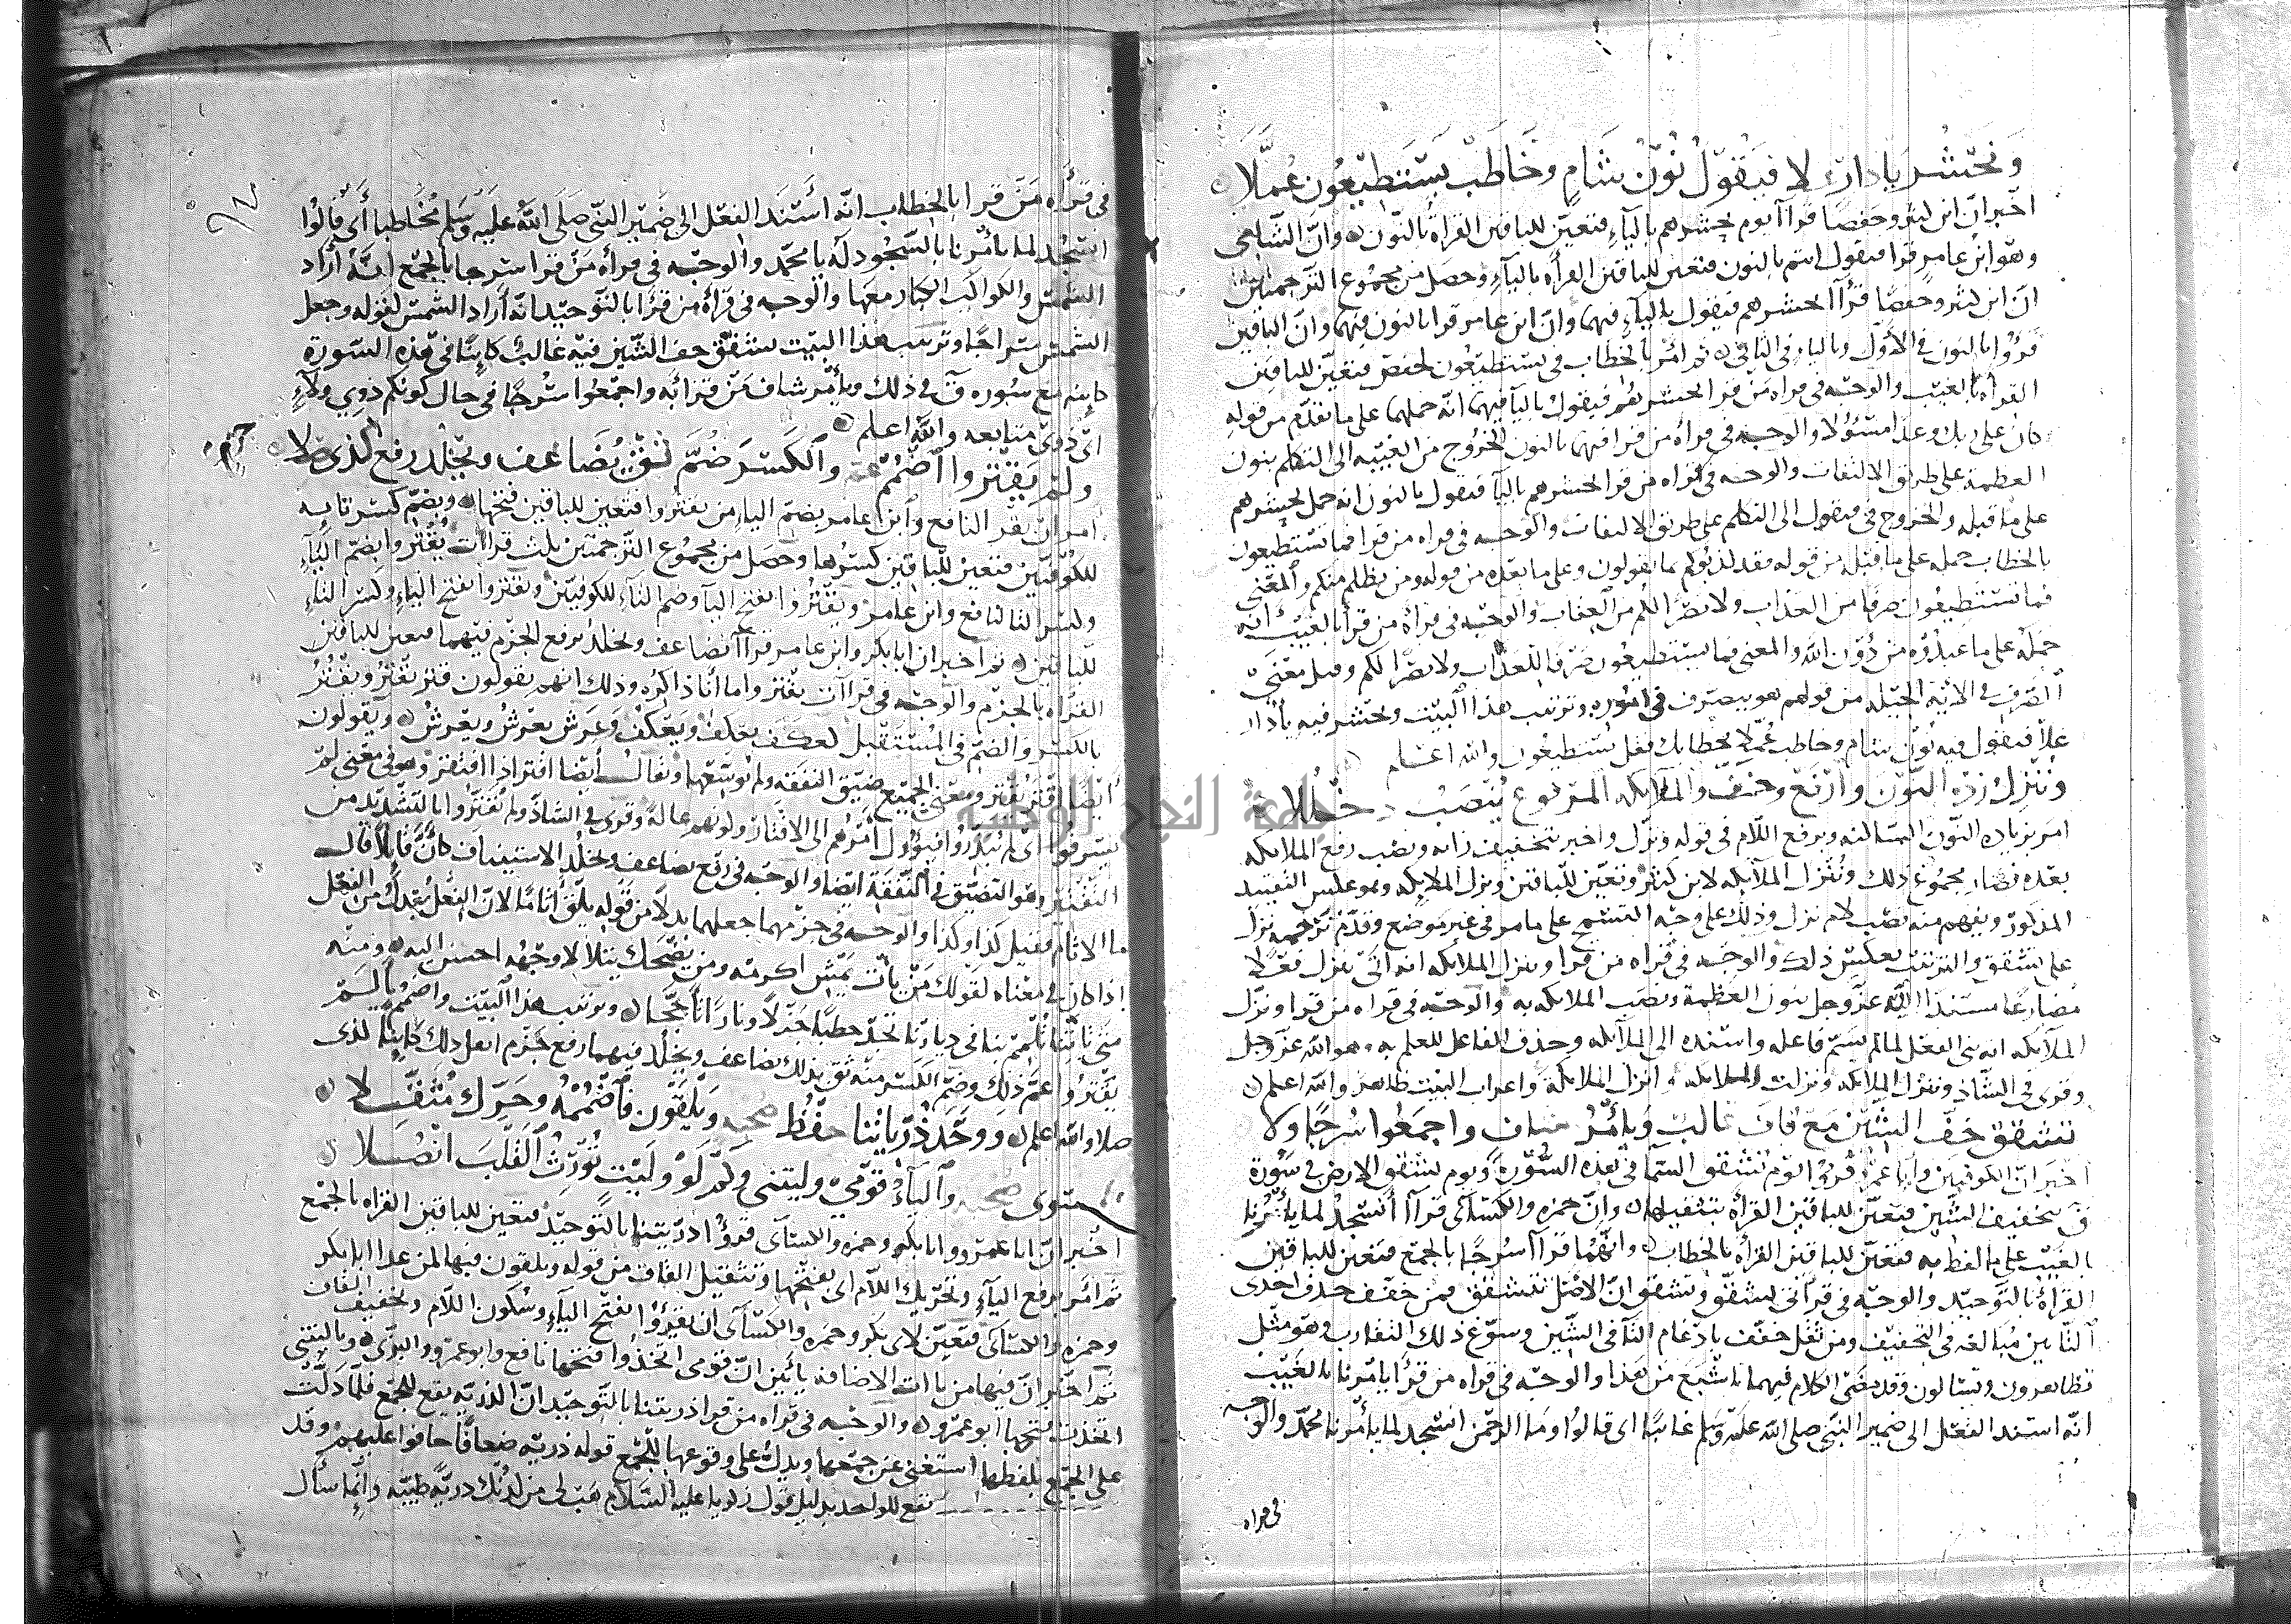 ونحشر يا دار علا فيقول نون شام وخاطب يستطيعون عملا
اخبر ان ابن كثير وحفصا قرآ يوم يحشرهم بالياء فتعين للباقين القراة بالنون وان الشامي
وهو ابن عامر قرا فنقول انتم بالنون فتعين للباقين القراه بالياء وحصل من مجموع الترجمتين
ان ابن كثير وحفصا قرأا يحشرهم فيقول بالياء فيهما وان ابن عامر قرا بالنون فيهما وان الباقين
قرؤا بالنون في الاول وبالياء في الثاني ثم امر بالخطاب في تستطيعون لحفص فتعين للباقين
القراه بالغيب والوجه في قراه من قرا يحشرهم فيقول باليا فيهما انه حملهما على ما تقدم من قوله
كان على ربك وعدا مسئولا والوجه في قراة من قرا فيهما بالنون الخروج من الغيبه الى التكلم بنون
العظمة على طريق الالتفات والوجه في قراه من قرا يحشرهم باليا فنقول بالنون انه حمل يحشرهم
على ما قبله والخروج في فنقول الى التكلم على طريق الالتفات والوجه في قراه من قرا فما تستطيعون
بالخطاب حمله على ما قبله من قوله فقد كذبوكم بما يقولون وعلى ما بعده من قوله ومن يظلم منكم والمعنى
فما تستطيعون صرفا من العذاب ولا نصرا لكم من العقاب والوجه في قراة من قرأ بالغيب انه
حمله على ما عبدوه من دون الله والمعنى فما يستطيعون صرفا للعذاب ولا نصرا لكم وقيل معنى
الصرف في الاية الحيله من قولهم هو يتصرف في اموره وترتيب هذا البيت ونحشر فيه يا دار
علا فيقول فيه نون شام وخاطب عملا بخطابك فعل تستطيعون والله اعلم
وننزل زده النون وارفع وخف والملايكه المرفوع ينصب دخللا
امر بزياده النون الساكنه وبرفع اللام في قوله ونزل واخبر بتخفيف زايه ونصب رفع الملايكه
بعده فصار مجموع ذلك وننزل الملآئكه لابن كثير وتعين للباقين ونزل الملايكه وهو عكس التقييد
المذكور ويفهم منه نصب لام نزل وذلك على وجه التسمح على ما مر في غير موضع وقدم ترجمه نزل
على تشقق والترتيب بعكس ذلك والوجه في قراه من قرا وننزل الملائكه انه اتى بنزل فعلا
مضارعا مسندا الى الله عز وجل بنون العظمة ونصب الملائكه به والوجه في قراه من قرا ونزل
الملآئكه انه بنى الفعل لما لم يسم فاعله واسنده الى الملآئكه وحذف الفاعل للعلم به وهو الله عز وجل
وقرى في الشاذ ونزل الملايكه ونزلت الملايكه وانزل الملايكه واعراب البيت ظاهر والله اعلم
تشقق خف الشين مع قاف غالب ويأمر شاف واجمعوا سرجا ولا
اخبر ان الكوفيين وابا عمرو قرؤا ويوم تشقق السما في هذه السورة ويوم تشقق الارض في سورة
ق بتخفيف الشين فتعين للباقين القرأه بتثقيلها وان حمزه والكسائى قرآا أنسجد لما يأمرنا
بالغيب على ما لفظ به فتعين للباقين القرأة بالخطاب وانهما قرآا سرجا بالجمع فتعين للباقين
القرأة بالتوحيد والوجه في قرأتى تشقق وتشقق ان الاصل تتشقق فمن خفف حذف احدى
التاين مبالغه في التخفيف ومن ثقل خفف بادغام التا في الشين وسوغ ذلك التقارب وهو مثل
تظاهرون وتسالون وقد مضى الكلام فيهما باشبع من هذا والوجه في قراه من قرأ يامرنا بالغيب
انه اسند الفعل الى ضمير النبي صلى الله عليه وسلم غائبا اى قالوا وما الرحمن انسجد لما يأمرنا محمد والوجه
في قراه
في قرأه من قرا بالخطاب انه أسند الفعل الى ضمير النبي صلى الله عليه وسلم مخاطبا أى قالوا
انسجد لما تأمرنا بالسجود له يا محمد والوجه في قرأه من قرا سرجا بالجمع انه أراد
الشمس والكواكب الكبار معها والوجه في قرأة من قرأ بالتوحيد انه أراد الشمس لقوله وجعل
الشمس سراجا وترتيب هذا البيت تشقق خف الشين فيه غالب كاينا في هذه السورة
كاينه مع سوره ق في ذلك ويأمر شاف من قرا به واجمعوا سرجا في حال كونكم ذوي ولاء
اى ذوي متابعه والله اعلم
ولم يقتروا اضمم عم والكسر ضم ثق يضاعف ويخلد رفع جزم كذى صلا
امر ان يقرا لنافع وابن عامر بضم الياء من يقتروا فتعين للباقين فتحها وبضم كسر تايه
للكوفيين فتعين للباقين كسرها وحصل من مجموع الترجمتين ثلث قرات يقتروا بضم الياء
وكسر التا لنافع وابن عامر ويقتروا بفتح اليا وضم التاء للكوفيين ويقتروا بفتح الياء وكسر التاء
للباقين ثم اخبر ان ابا بكر وابن عامر قرآا يضاعف ويخلد برفع الجزم فيهما فتعين للباقين
القراه بالجزم والوجه في قراات يقتروا ما أنا ذاكره وذلك انهم يقولون قتر يقتر ويقتر
بالكسر والضم في المستقبل كعكف يعكف ويعكف وعرش يعرش ويعرش ويقولون
أيضا اقتر يقتر ومعنى الجميع ضيق النفقه ولم يوسعها ويقال أيضا اقتر اذا افتقر وهو في معنى لم
يسرفوا اى لم يبذروا فيؤول أمرهم الى الاقتار ولونهم عالة وقرى في الشاذ ولم يقتروا بالتشديد من
التقتير وهو التضيق في النفقة ايضا والوجه في رفع يضاعف ويخلد الاستيناف كأن قايلا قال
ما الاثام فقيل كذا وكذا والوجه في جزمهما جعلهما بدلا من قوله يلق أثاما لان الفعل يبدل من الفعل
اذا كان في معناه كقولك من يأت يمش اكرمه ومن يضحك يتلالا وجهه احسن اليه ومنه
متى تاتنا تلمم بنا في ديارنا تجد حطبا جزلا ونارا تأججا وترتيب هذا البيت واضمم يا لم
يقتروا عم ذلك وضم الكسر منه ثق بذلك يضاعف ويخلد فيهما رفع جزم افعل ذلك كاينا كذى
صلا والله اعلم ووحد ذرياتنا حفظ صحبه ويلقون فاضممه وحرك مثقلا
سوى صحبه والياء قومي وليتني وكم لو وليت تورث القلب انصلا
اخبر ان ابا عمرو وابا بكر وحمزه والكسآى قرؤا ذريتنا بالتوحيد فتعين للباقين القراه بالجمع
ثم امر برفع الياء وتحريك اللام اى بفتحها وتثقيل القاف من قوله ويلقون فيها لمن عدا ابا بكر
وحمزه والكسآى فتعين لابى بكر وحمزه والكسآى ان يقرؤا بفتح الياء وسكون اللام وتخفيف القاف
ثم اخبر ان فيها من ياات الاضافه يائين ان قومى اتخذوا فتحها نافع وابو عمرو والبزى ويا ليتنى
اتخذت فتحها ابو عمرو والوجه في قراه من قرا ذريتنا بالتوحيد ان الذريه يقع للجمع فلما دلت
على الجمع بلفظها استغنى عن جمعها ويدل على وقوعها للجمع قوله ذريه ضعافا خافوا عليهم وقد
تقع للواحد بدليل قول زكريا عليه السلام هب لى من لدنك ذرية طيبه وانما سأل
جامعة النجاح الوطنية